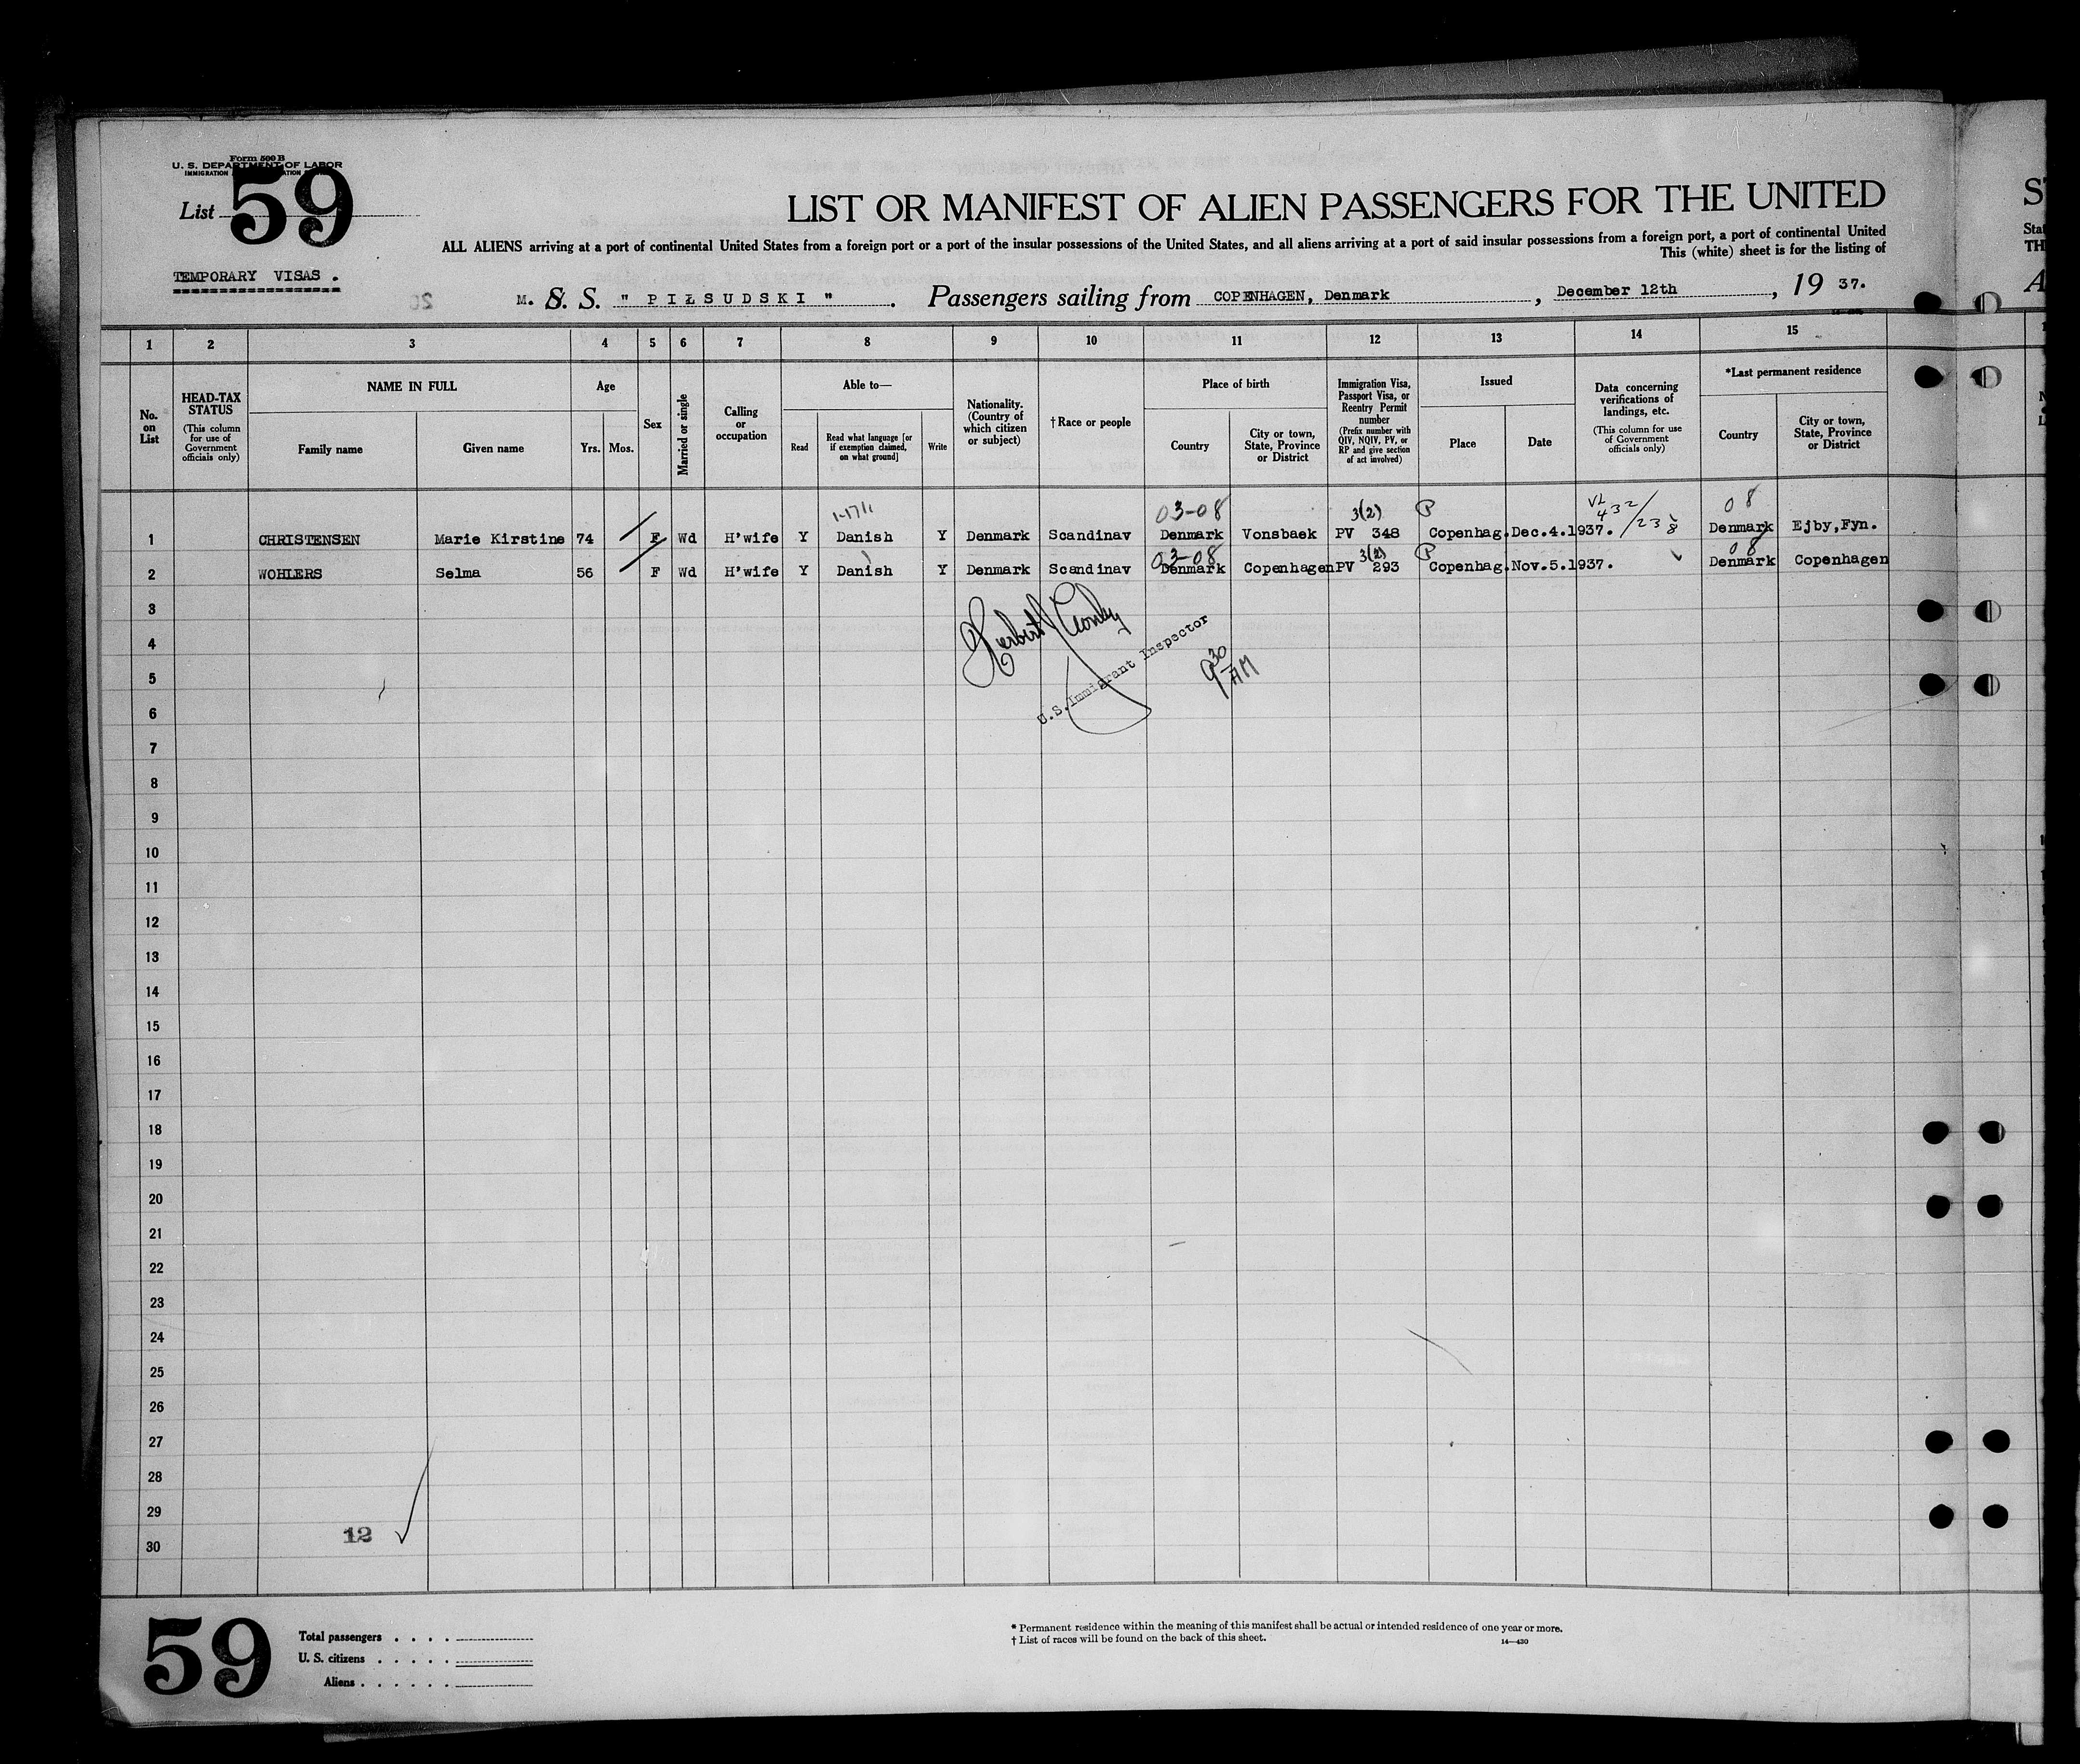 Form 500 B
U. S. DEPARTMENT OF LABOR
IMMIGRATION
List 59
LIST OR MANIFEST OF ALIEN PASSENGERS FOR THE UNITED
ALL ALIENS arriving at a port of continental United States from a foreign port or a port of the insular possessions of the United States, and all aliens arriving at a port of said insular possessions from a foreign port, a port of continental United
This (white) sheet is for the listing of
TEMPORARY VISAS.
M. S. S. " PIŁSUDSKI ". Passengers sailing from COPENHAGEN, Denmark, December 12th, 19 37.
1 2 3 4 5 6 7 8 9 10 11 12 13 14 15
No. on List
HEAD-TAX STATUS (This column for use of Government officials only)
NAME IN FULL
Family name
Given name
Age
Yrs. Mos.
Sex
Married or single
Calling or occupation
Able to—
Read
Read what language [or if exemption claimed, on what ground]
Write
Nationality. (Country of which citizen or subject)
† Race or people
Place of birth
Country
City or town, State, Province or District
Immigration Visa, Passport Visa, or Reentry Permit number (Prefix number with QIV, NQIV, PV, or RP and give section of act involved)
Issued
Place
Date
Data concerning verifications of landings, etc. (This column for use of Government officials only)
*Last permanent residence
Country
City or town, State, Province or District
03-08 3(2) P 08
1 CHRISTENSEN Marie Kirstine 74 F Wd H'wife Y Danish Y Denmark Scandinav Denmark Vonsbaek PV 348 Copenhag. Dec.4.1937. Denmark Ejby,Fyn.
03-08 3(2) P 08
2 WOHLERS Selma 56 F Wd H'wife Y Danish Y Denmark Scandinav Denmark Copenhagen PV 293 Copenhag. Nov.5.1937. Denmark Copenhagen
3
4
U.S.Immigrant Inspector
9 30 AM
5
6
7
8
9
10
11
12
13
14
15
16
17
18
19
20
21
22
23
24
25
26
27
28
29
12
30
59
Total passengers
U. S. citizens
Aliens
* Permanent residence within the meaning of this manifest shall be actual or intended residence of one year or more.
† List of races will be found on the back of this sheet.
14—430